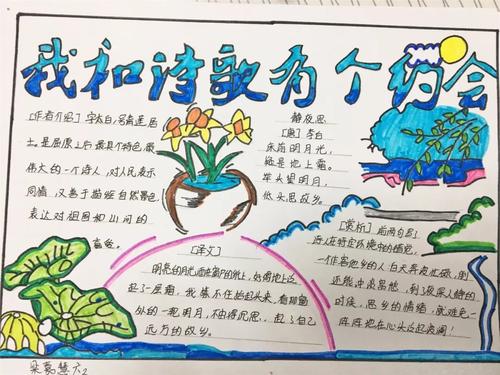 我和诗歌有个约会
[作者介绍]字太白,号青莲居
士。是屈原之后最具个特色、最
伟大的一个诗人,对人民表示
同情,又善于描绘自然景色
表达对祖国和山河的
喜爱。
静夜思
[唐]李白
床前明月光,
疑是地上霜。
举头望明月,
低头思故乡。
[译文]
明亮的月光洒在窗户纸上,好像地上泛
起了一层霜。我禁不住抬起头来,看那窗
外的一轮明月,不由得沉思,想起了自己
远方的故乡。
[赏析]后两句写
后人在特定环境中的情
一个客他乡的人,白天奔波忙碌,倒
还能冲淡愁思,到了夜深人静的
时候,思乡的情绪,就难免一
阵阵地在心头泛起波澜!
六2